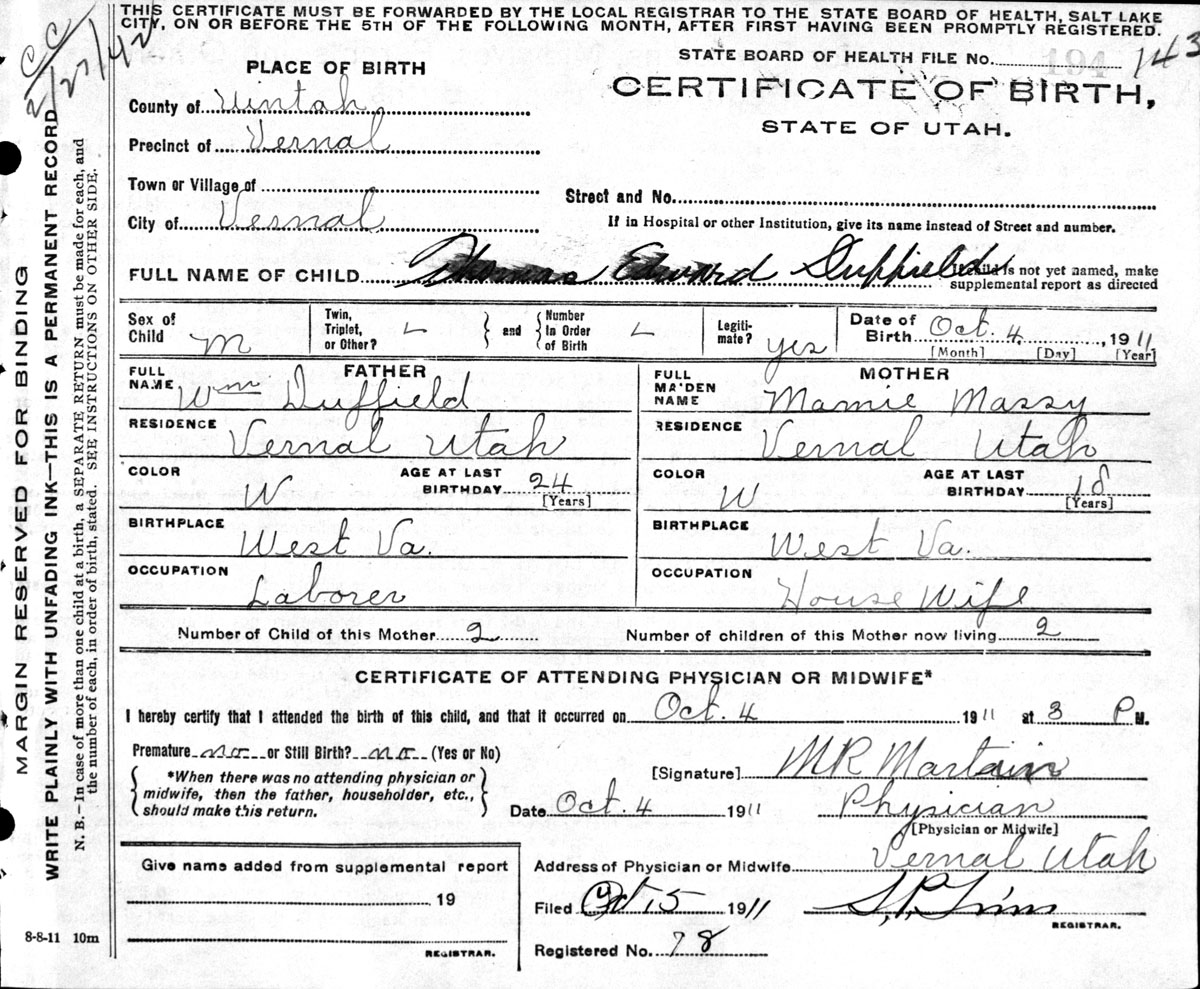 THIS CERTIFICATE MUST BE FORWARDED BY THE LOCAL REGISTRAR TO THE STATE BOARD OF HEALTH, SALT LAKE
CITY, ON OR BEFORE THE 5TH OF THE FOLLOWING MONTH, AFTER FIRST HAVING BEEN PROMPTLY REGISTERED.
CC
2/27/42
STATE BOARD OF HEALTH FILE No. 143
194
PLACE OF BIRTH
CERTIFICATE OF BIRTH,
STATE OF UTAH.
County of Uintah
Precinct of Vernal
Town or Village of
Street and No.
City of Vernal
If in Hospital or other Institution, give its name instead of Street and number.
FULL NAME OF CHILD Thomas Edward Duffield
If child is not yet named, make
supplemental report as directed
Sex of Child M
Twin, Triplet, or Other? and Number In Order of Birth
Legitimate? yes
Date of Birth Oct. 4, 1911
[Month] [Day] [Year]
FATHER
FULL NAME Wm Duffield
RESIDENCE Vernal Utah
COLOR W AGE AT LAST BIRTHDAY 24
[Years]
BIRTHPLACE West Va.
OCCUPATION Laborer
MOTHER
FULL MA'DEN NAME Mamie Massy
RESIDENCE Vernal Utah
COLOR W AGE AT LAST BIRTHDAY 18
[Years]
BIRTHPLACE West Va.
OCCUPATION House Wife
Number of Child of this Mother 2 Number of children of this Mother now living 2
CERTIFICATE OF ATTENDING PHYSICIAN OR MIDWIFE*
I hereby certify that I attended the birth of this child, and that it occurred on Oct. 4 1911 at 3 P M.
Premature no or Still Birth? no (Yes or No)
*When there was no attending physician or
midwife, then the father, householder, etc.,
should make this return.
[Signature] MR Martain
Date Oct. 4 1911 Physician
[Physician or Midwife]
Give name added from supplemental report
19
REGISTRAR.
Address of Physician or Midwife Vernal Utah
Filed Oct 15 1911
REGISTRAR.
Registered No. 78
8-8-11 10m
MARGIN RESERVED FOR BINDING
WRITE PLAINLY WITH UNFADING INK—THIS IS A PERMANENT RECORD
N. B.—In case of more than one child at a birth, a SEPARATE RETURN must be made for each, and
the number of each, in order of birth, stated. SEE INSTRUCTIONS ON OTHER SIDE.